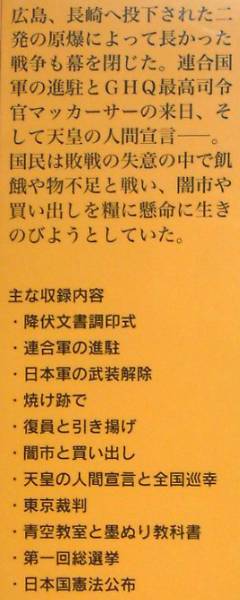 広島、長崎へ投下された二
発の原爆によって長かった
戦争も幕を閉じた。連合国
軍の進駐とGHQ最高司令
官マッカーサーの来日、そ
して天皇の人間宣言――。
国民は敗戦の失意の中で飢
餓や物不足と戦い、闇市や
買い出しを糧に懸命に生き
のびようとしていた。
主な収録内容
・降伏文書調印式
・連合軍の進駐
・日本軍の武装解除
・焼け跡で
・復員と引き揚げ
・闇市と買い出し
・天皇の人間宣言と全国巡幸
・東京裁判
・青空教室と墨ぬり教科書
・第一回総選挙
・日本国憲法公布